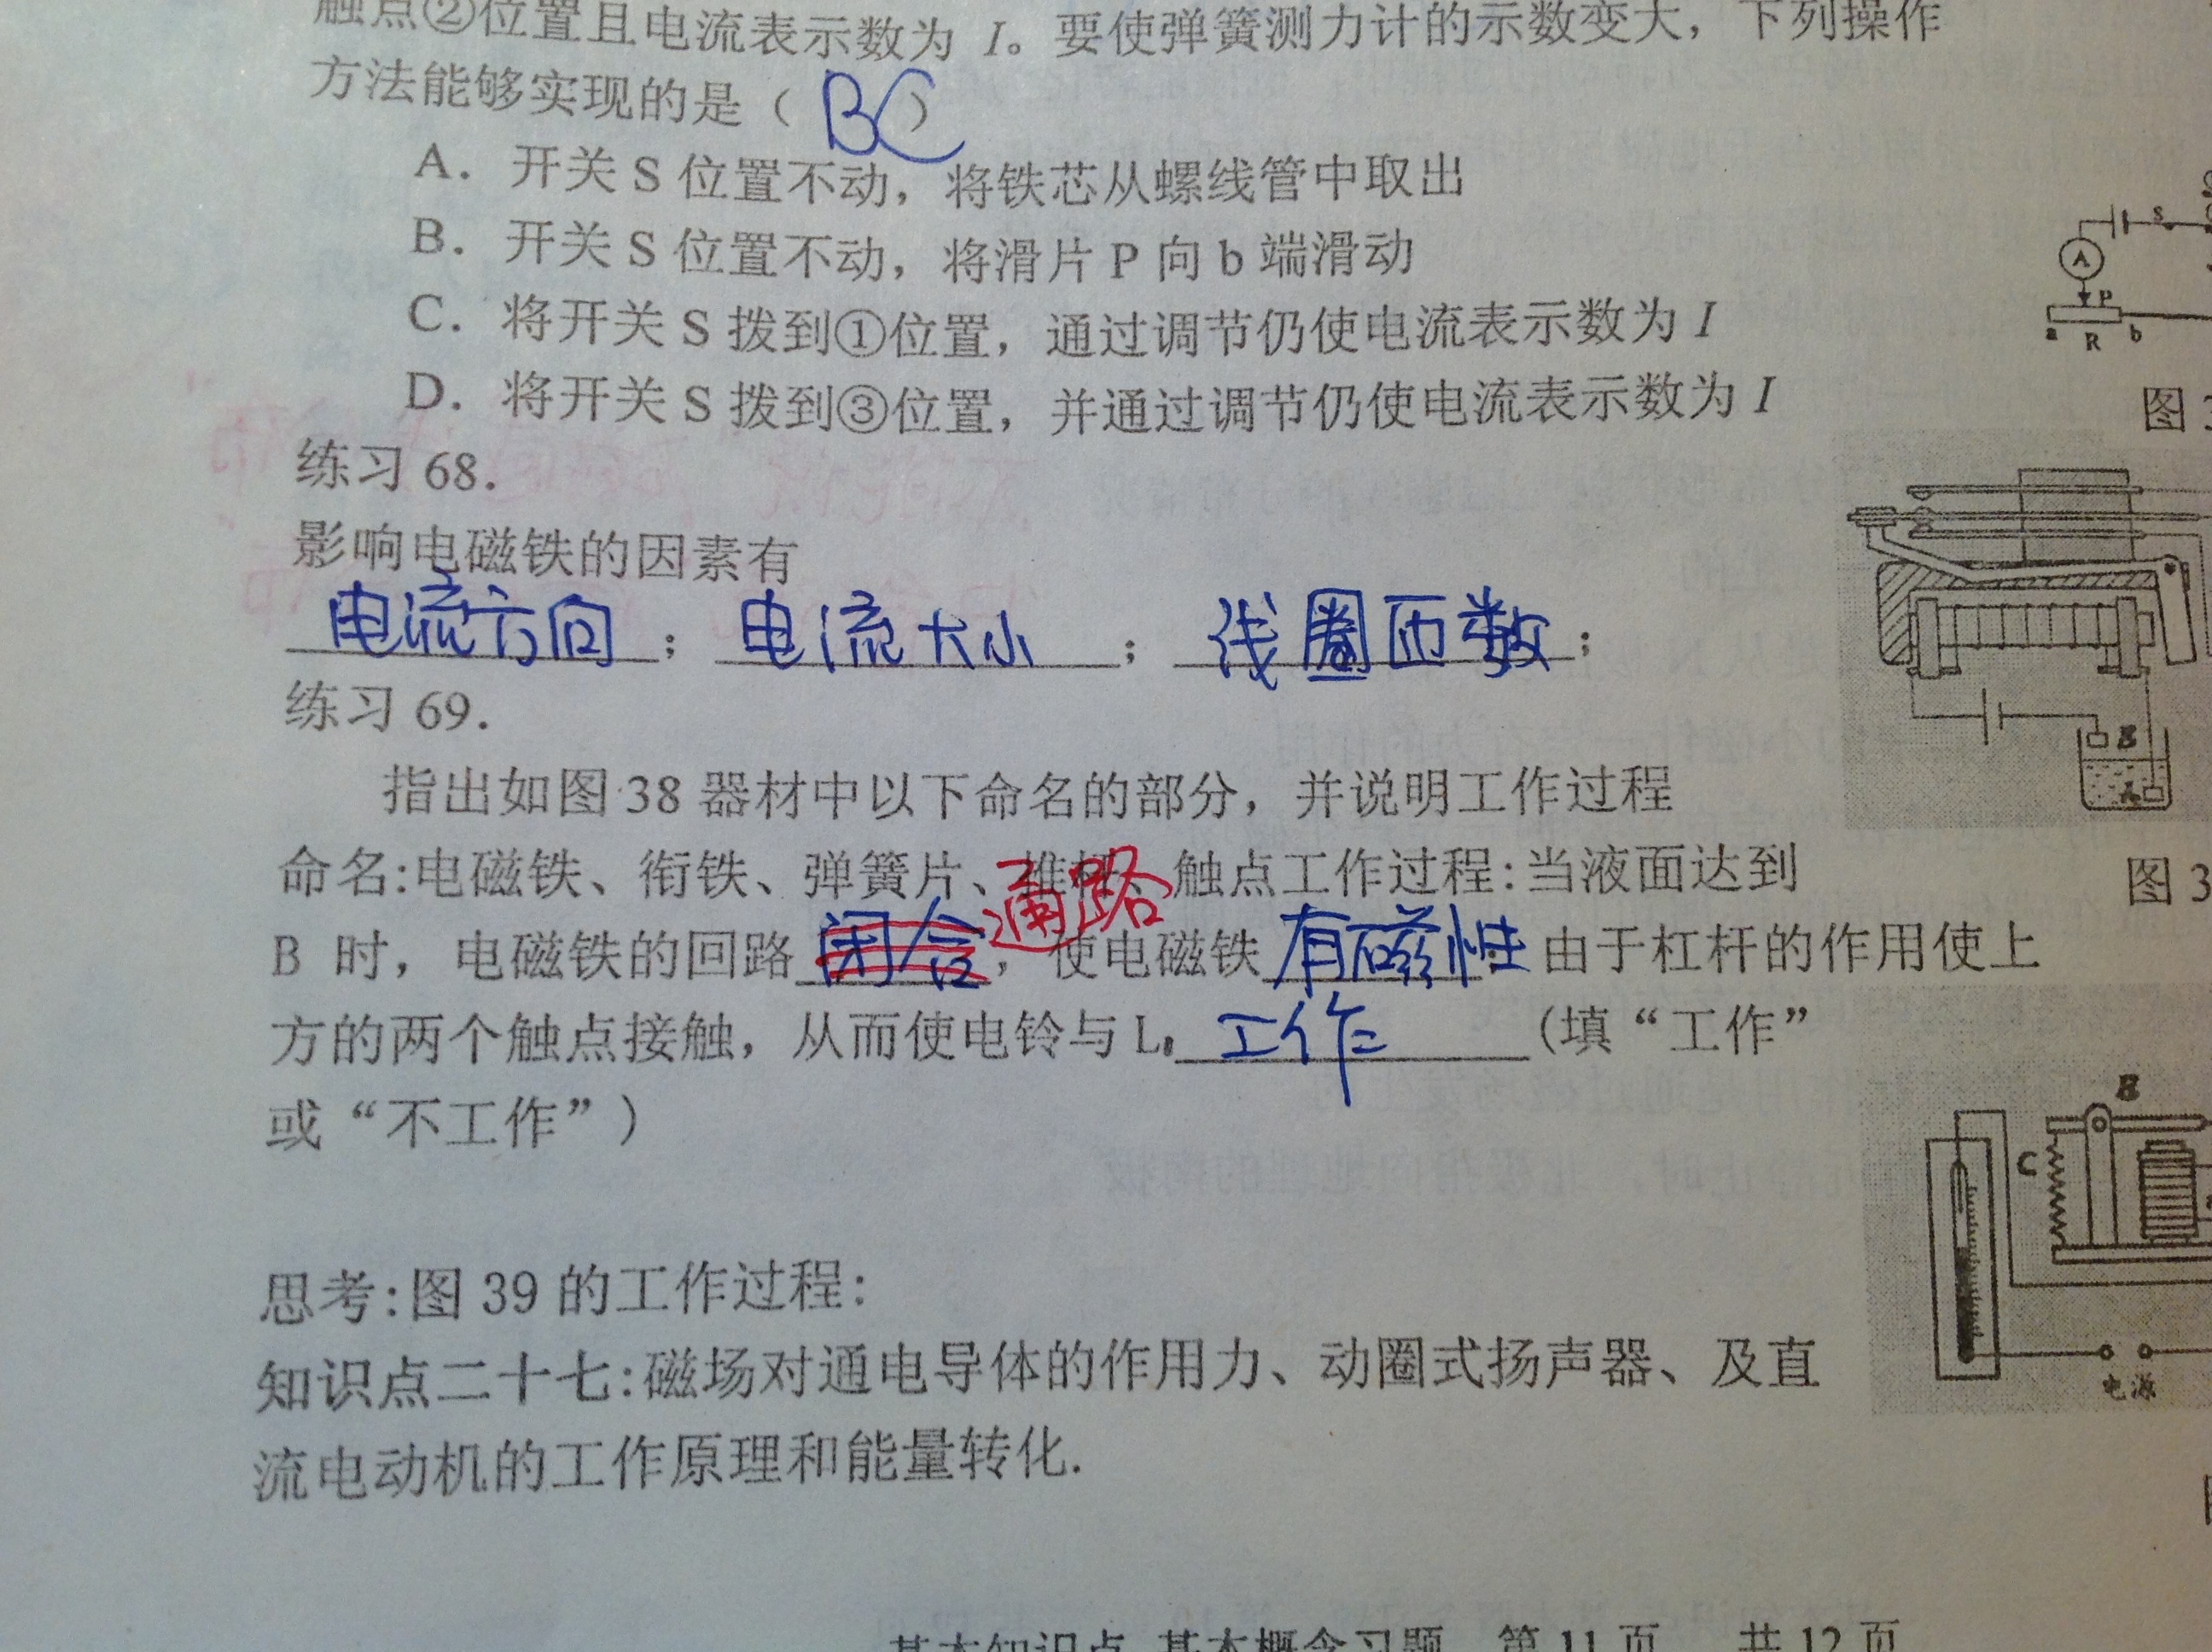 触点②位置且电流表示数为 I。要使弹簧测力计的示数变大，下列操作
方法能够实现的是（ BC ）
A. 开关 S 位置不动，将铁芯从螺线管中取出
B. 开关 S 位置不动，将滑片 P 向 b 端滑动
C. 将开关 S 拨到①位置，通过调节仍使电流表示数为 I
D. 将开关 S 拨到③位置，并通过调节仍使电流表示数为 I
S
A
P
a R b
图
练习 68.
影响电磁铁的因素有
电流方向；电流大小；线圈匝数；
练习 69.
指出如图 38 器材中以下命名的部分，并说明工作过程
B
A
图 3
命名:电磁铁、衔铁、弹簧片、推杆、触点工作过程:当液面达到
通路
B 时，电磁铁的回路闭合，使电磁铁有磁性 由于杠杆的作用使上
方的两个触点接触，从而使电铃与 L 工作 (填“工作”
或“不工作”)
B
C
电源
思考:图 39 的工作过程:
知识点二十七:磁场对通电导体的作用力、动圈式扬声器、及直
流电动机的工作原理和能量转化.
基本知识点 基本概念习题 第 11 页 共 12 页